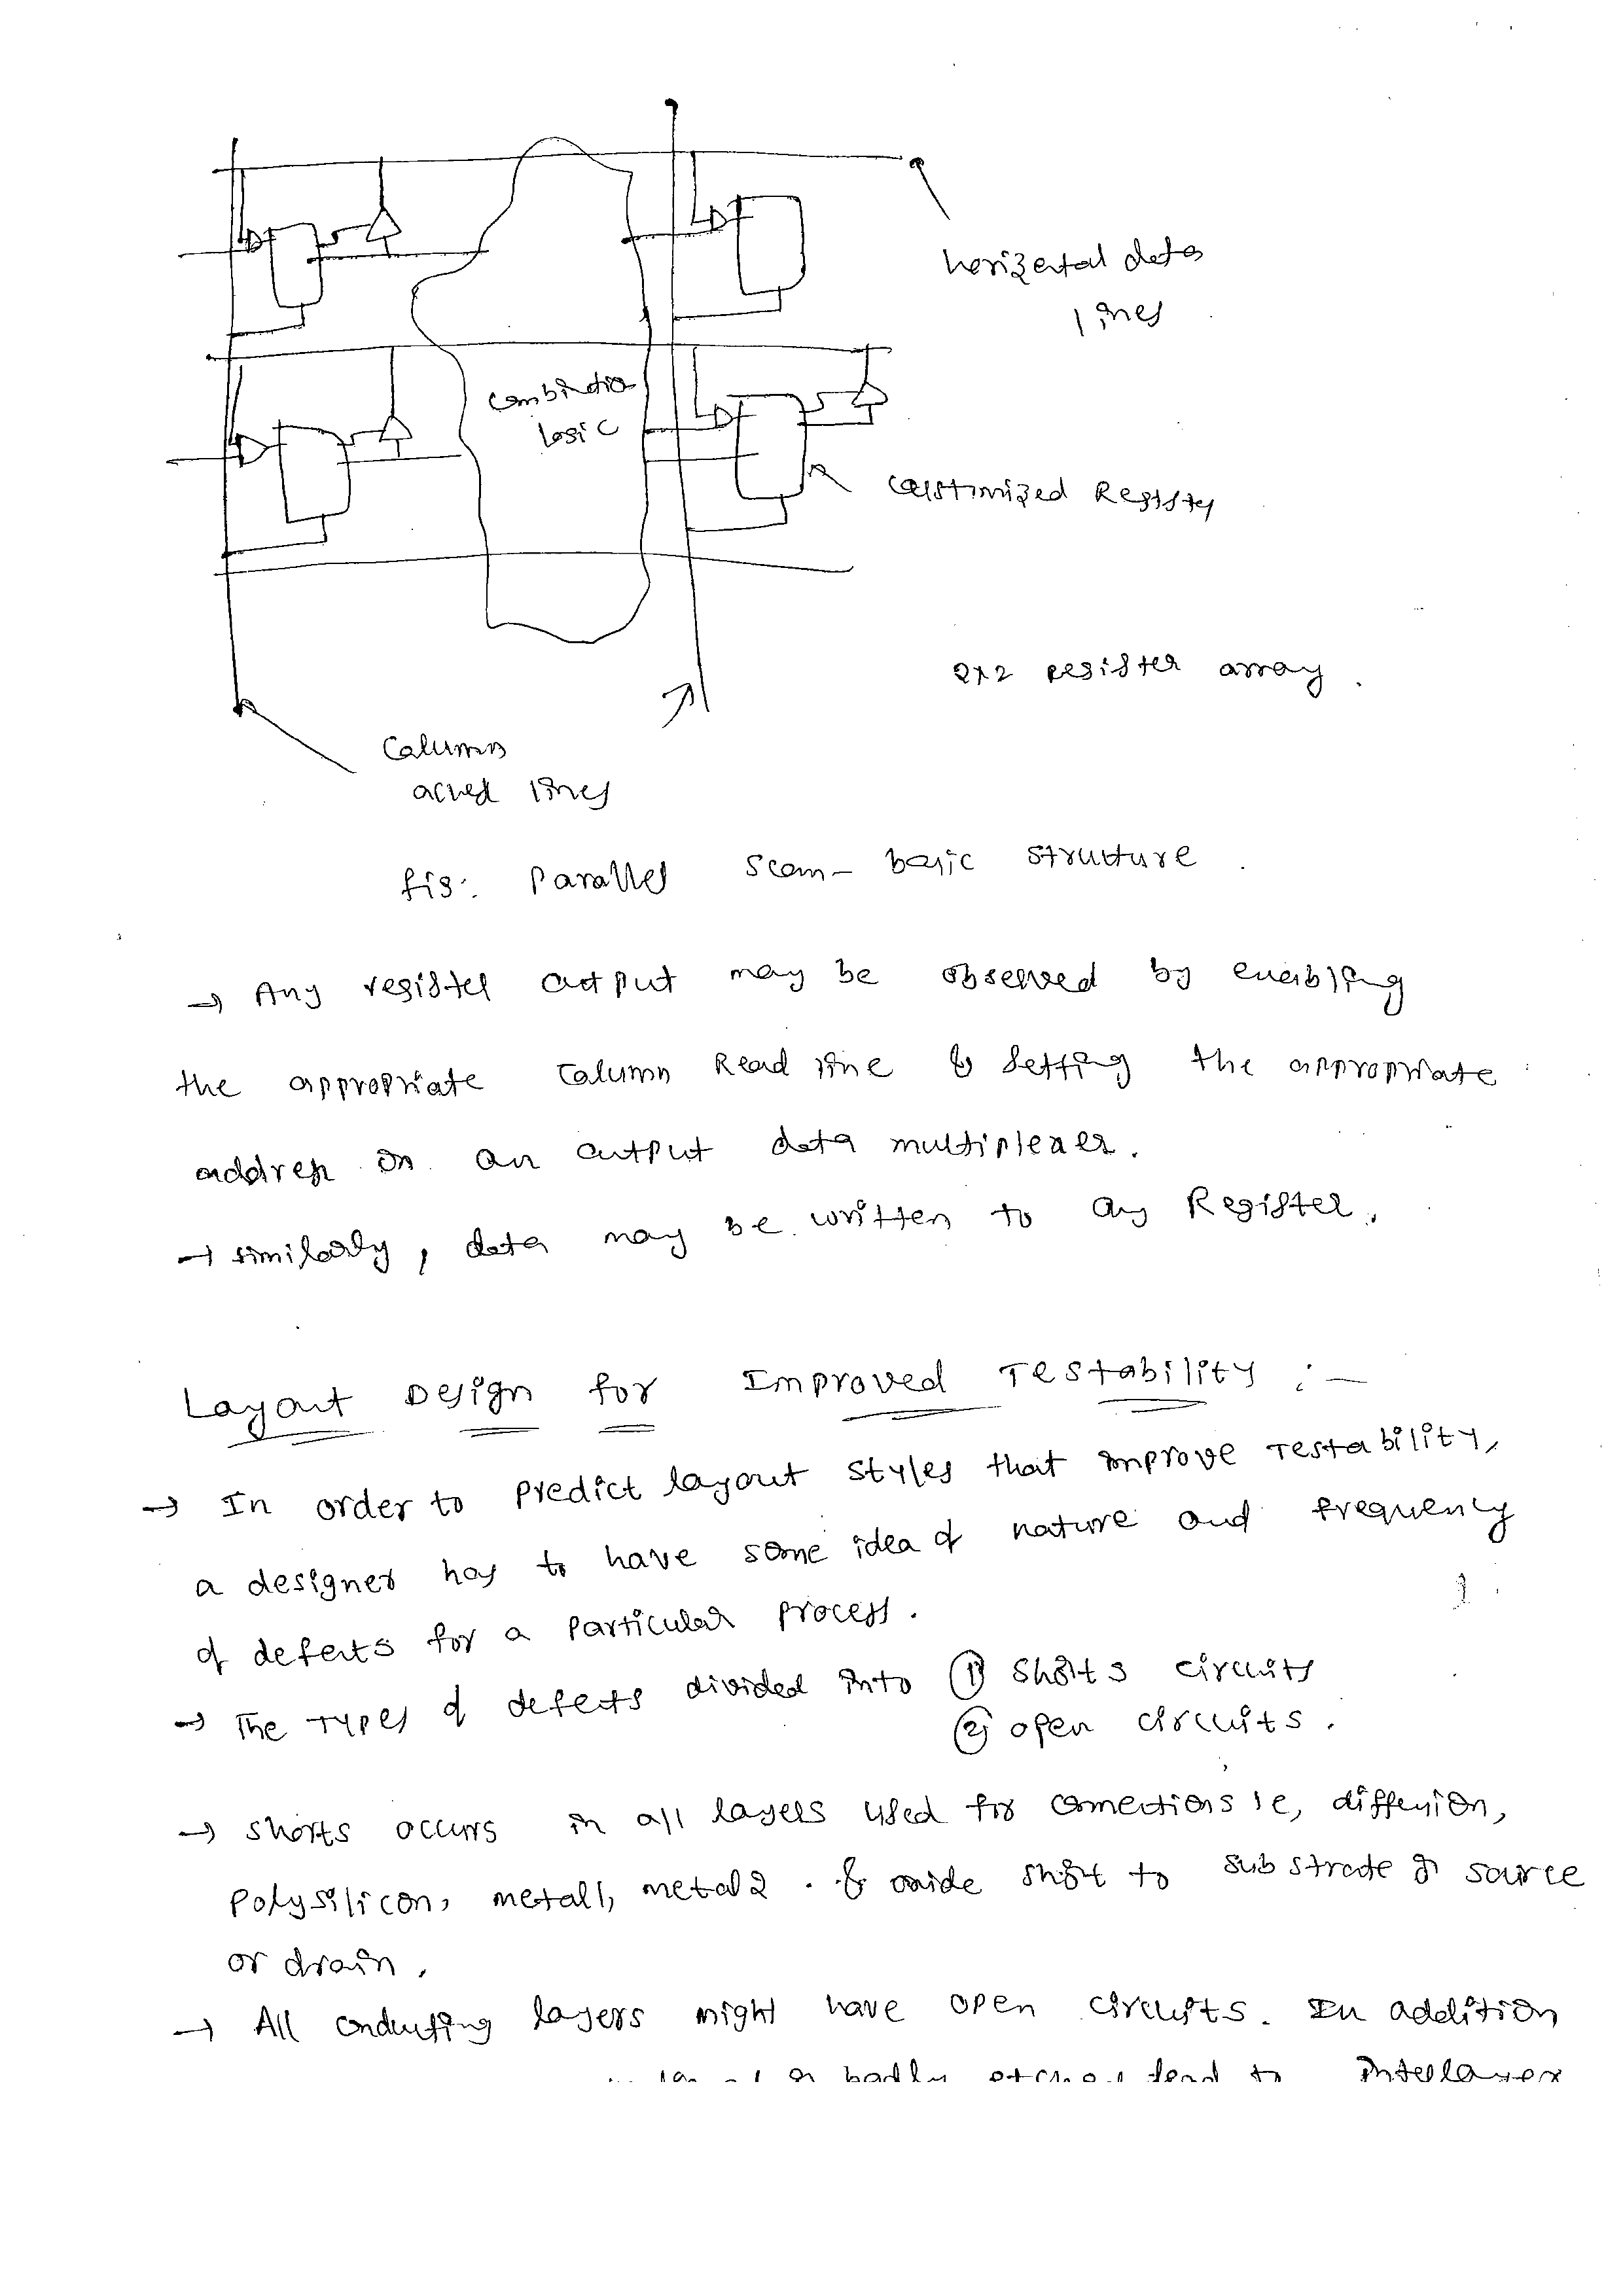 horizental data
lines
combinatio
logic
customized Register
2x2 register array.
Column
lines
fig: Parallel scan- basic structure.
→ Any register output may be observed by enabling
the appropriate column Read line & setting the appropriate
address on an output data multiplexer.
→ similarly, data may be written to any Register.
Layout Design for Improved Testability :-
→ In order to predict layout styles that improve testability,
a designer has to have some idea of nature and frequency
of defects for a particular process.
→ The types of defects divided into ① shorts circuits
② open circuits.
→ shorts occurs in all layers used for connections ie, diffusion,
Polysilicon, metal1, metal2. & oxide short to substrate or source
or drain.
→ All conducting layers might have open circuits. In addition
or badly etched lead to interlayer